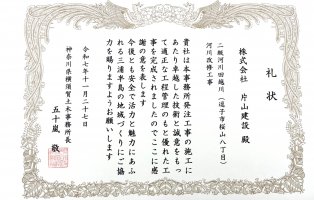 礼状
株式会社 片山建設 殿
二級河川田越川(逗子市桜山八丁目)
河川改修工事
貴社は本事務所発注工事の施工に
あたり卓越した技術と誠意をもっ
て適正な工程管理のもと優れた工
事を完成されましたのでここに感
謝の意を表します
今後とも安全で活力と魅力にあふ
れる三浦半島の地域づくりにご協
力を賜りますようお願いします
令和七年十一月二十七日
神奈川県横須賀土木事務所長
五十嵐 敬